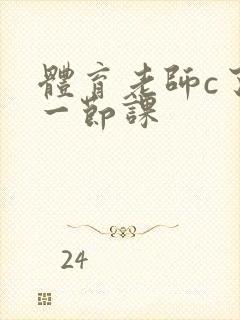 體育老師c了
一節課
24